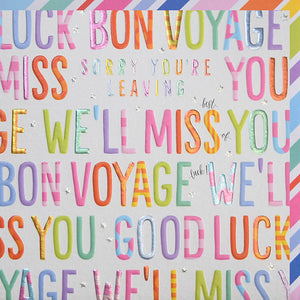 LUCK BON VOYAGE
MISS SORRY YOU'RE LEAVING YOU
GE WE'LL MISS YOU
best of
BON VOYAGE WE'LL
luck!
SS YOU GOOD LUCK
VOYAGE WE'LL MISS